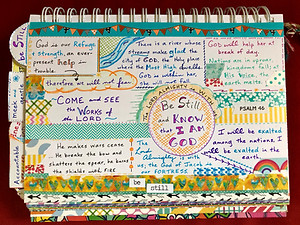 be STILL
God is our Refuge
& strength, an ever-
present help in
trouble.
therefore we will not fear
There is a river whose
streams make glad the
city of GOD, the Holy place
where the Most High dwells.
God is with her,
she will not fall.
God will help her at
break of day.
Nations are in
uproar,
kingdoms
His voice, the
earth melts.
COME and SEE
the WORKS of
the LORD
The LORD Almighty is with us
Be Still
and
KNOW
that
I AM
GOD
PSALM 46
I will be exalted
among the nations, I
will be exalted in the
earth.
He makes wars cease
He breaks the bow and
shatters the spear, he burns
the shields with FIRE
Almighty is with
us; the God of Jacob is
our FORTRESS
be
still